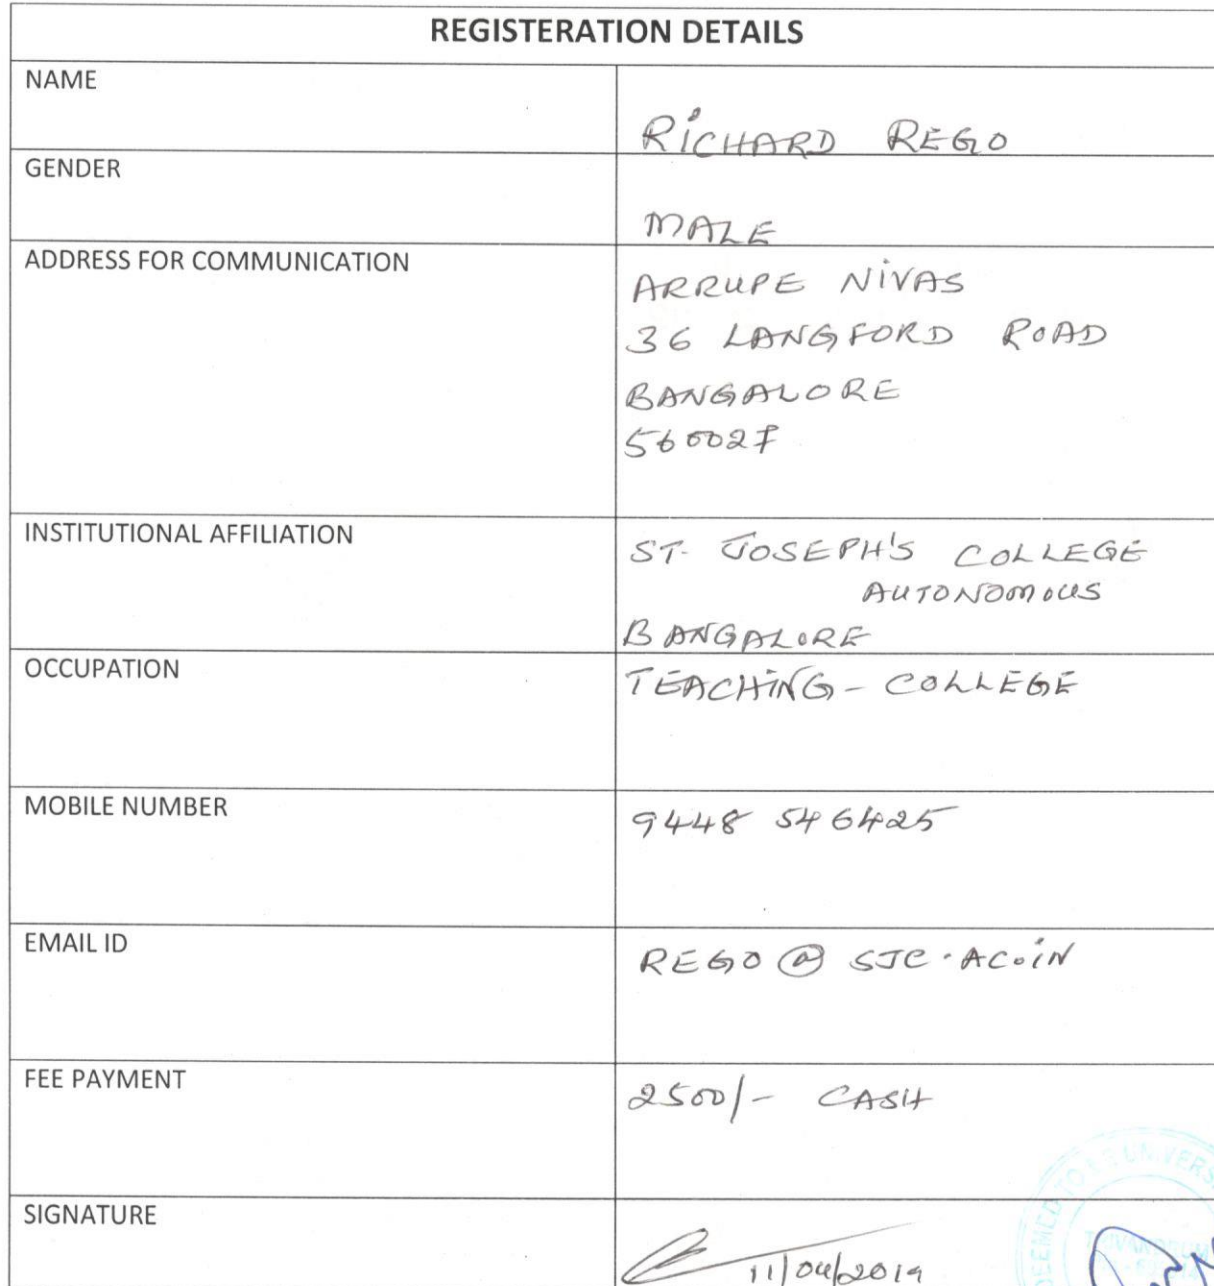 REGISTERATION DETAILS
NAME
RICHARD REGO
GENDER
MALE
ADDRESS FOR COMMUNICATION
ARRUPE NIVAS
36 LANGFORD ROAD
BANGALORE
560027
INSTITUTIONAL AFFILIATION
ST. JOSEPH'S COLLEGE
AUTONOMOUS
BANGALORE
OCCUPATION
TEACHING - COLLEGE
MOBILE NUMBER
9448 546425
EMAIL ID
REGO @ SJC.AC.IN
FEE PAYMENT
2500/- CASH
SIGNATURE
11/04/2019
DEEMED TO BE UNIVERS